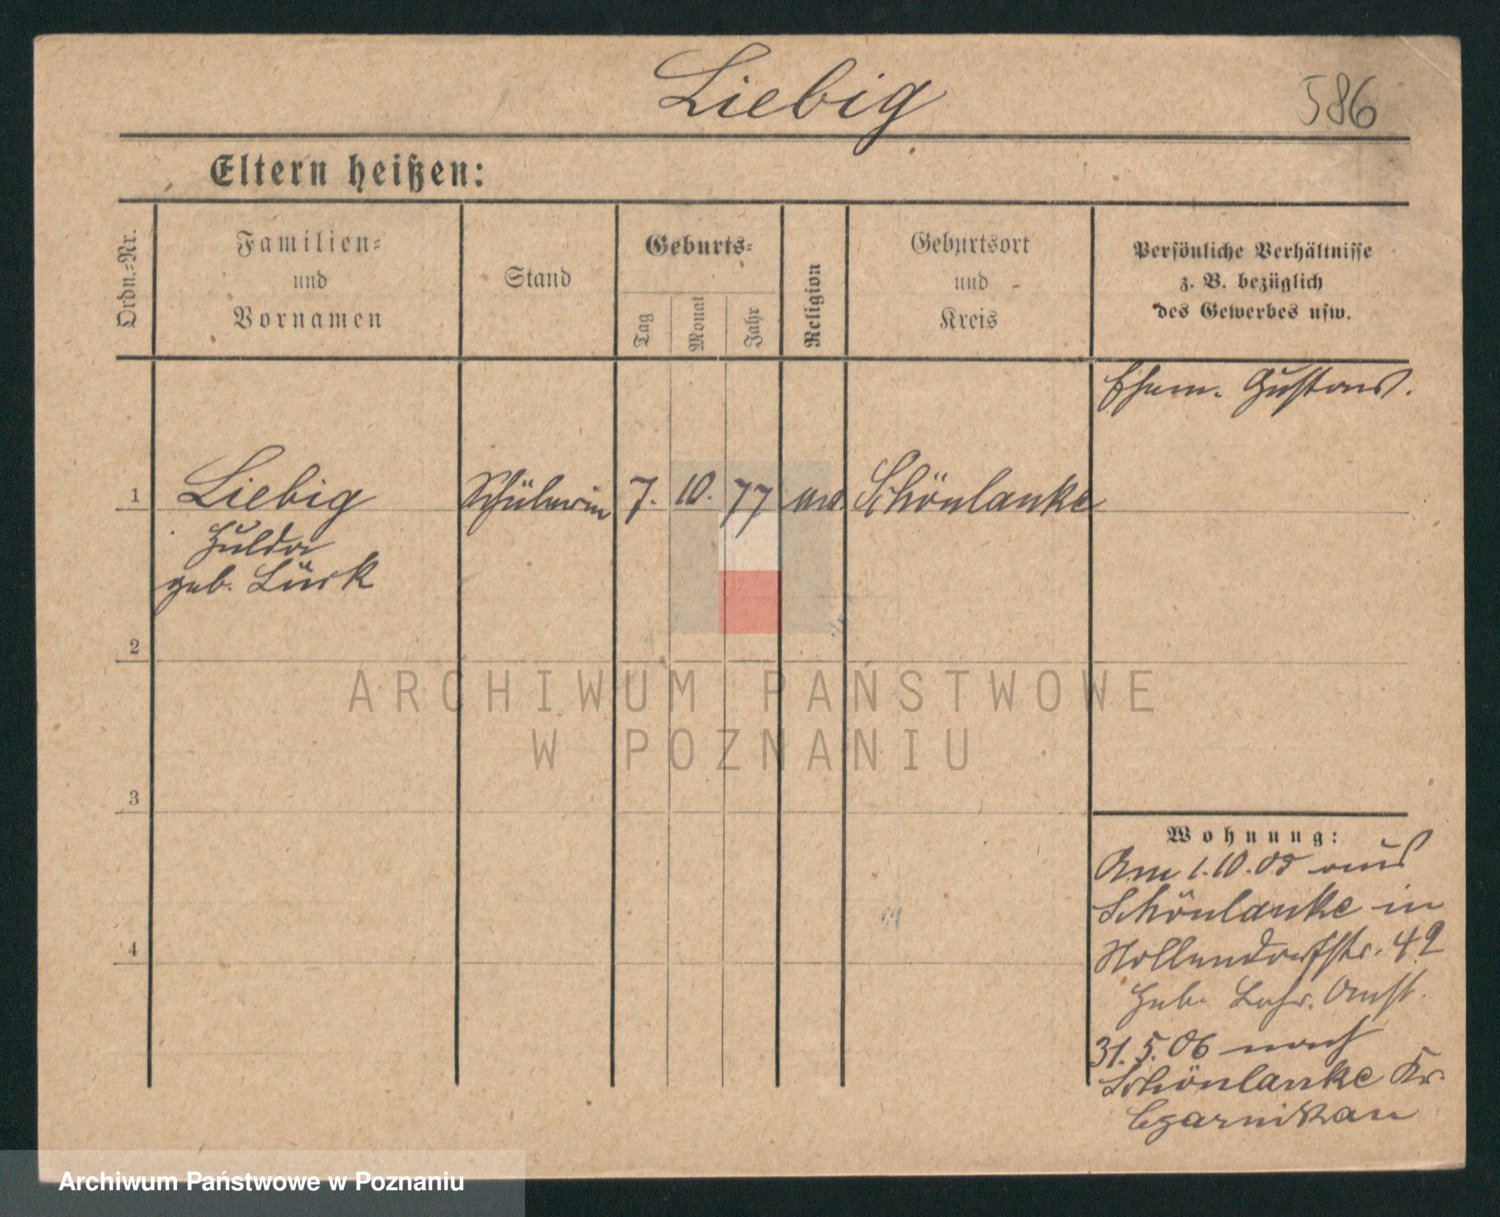 Liebig
586
Eltern heißen:
Ordn.=Nr.
Familien=
und
Vornamen
Stand
Geburts=
Tag
Monat
Jahr
Religion
Geburtsort
und
Kreis
Persönliche Verhältnisse
z. B. bezüglich
des Gewerbes usw.
Ehem. Gustav
1 Liebig Schülerin 7. 10. 77 Schönlanke
Hulda
geb. Lück
2
3
4
Wohnung:
Am 1.10.05 aus
Schönlanke in
Hollendorfstr. 42
Heb. Lehr. Anst.
31.5.06 nach
Schönlanke Kr.
Czarnikau
ARCHIWUM PAŃSTWOWE
W POZNANIU
Archiwum Państwowe w Poznaniu